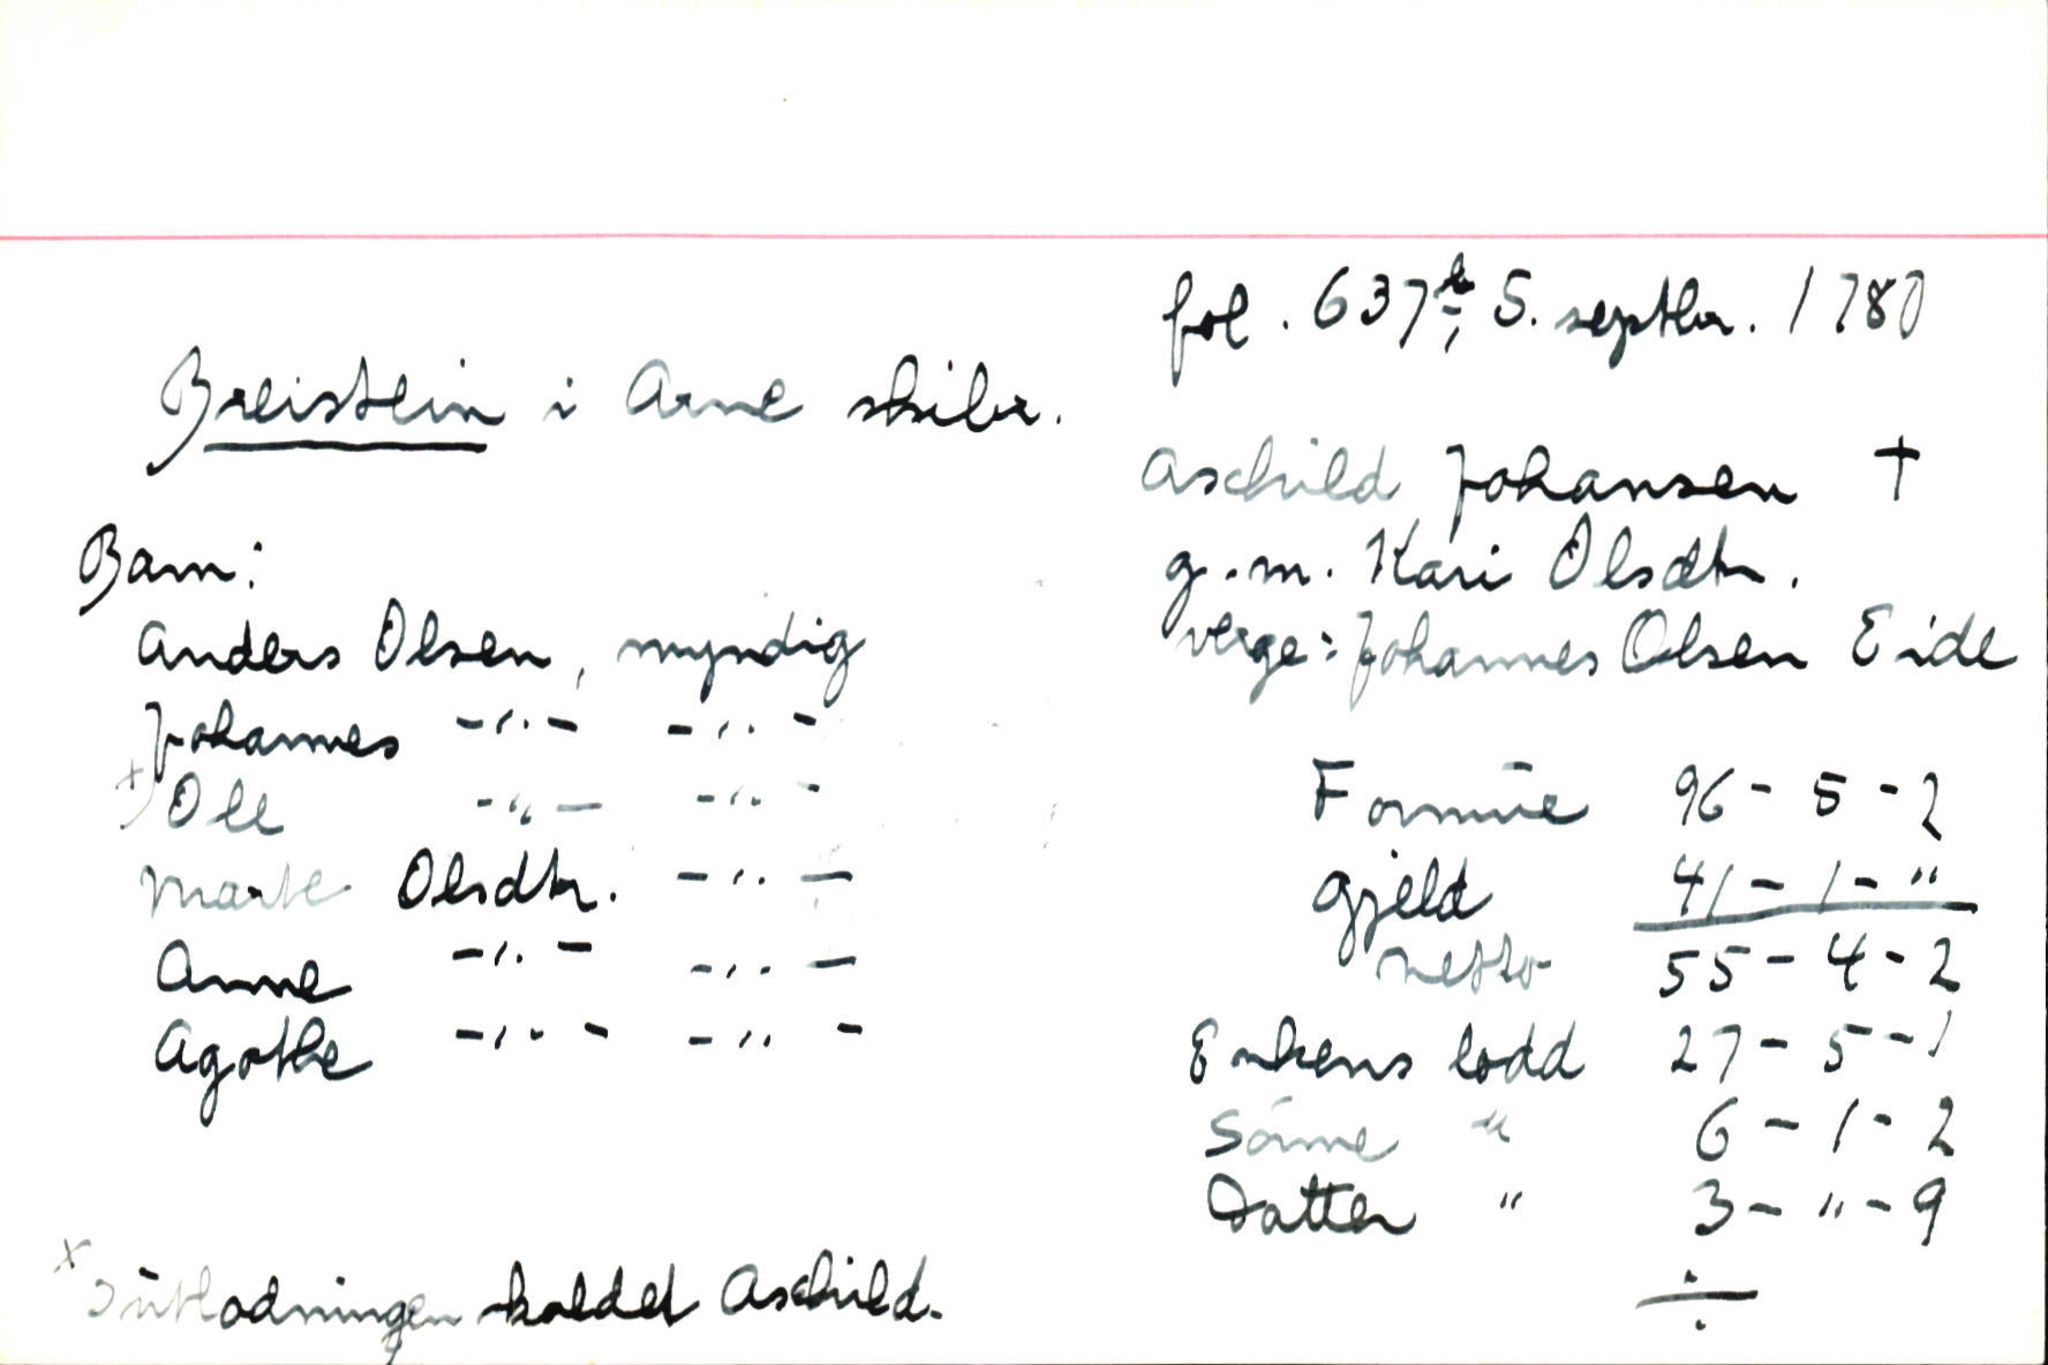 fol. 637b, 5. septbr. 1780
Breistein i Arne skibr.
Aschild Johansen †
g.m. Kari Olsdtr.
verge: Johannes Olsen Eide
Barn:
Anders Olsen, myndig
Johannes -"- -"-
x) Ole -"- -"-
Marte Olsdtr. -"-
Anne -"- -"-
Agathe -"- -"-
Formue 96 - 5 - 2
Gjeld 41 - 1 - "
netto 55 - 4 - 2
Enkens lodd 27 - 5 - 1
Sönne " 6 - 1 - 2
Datter " 3 - " - 9
÷
x I utlodningen kaldet Aschild.